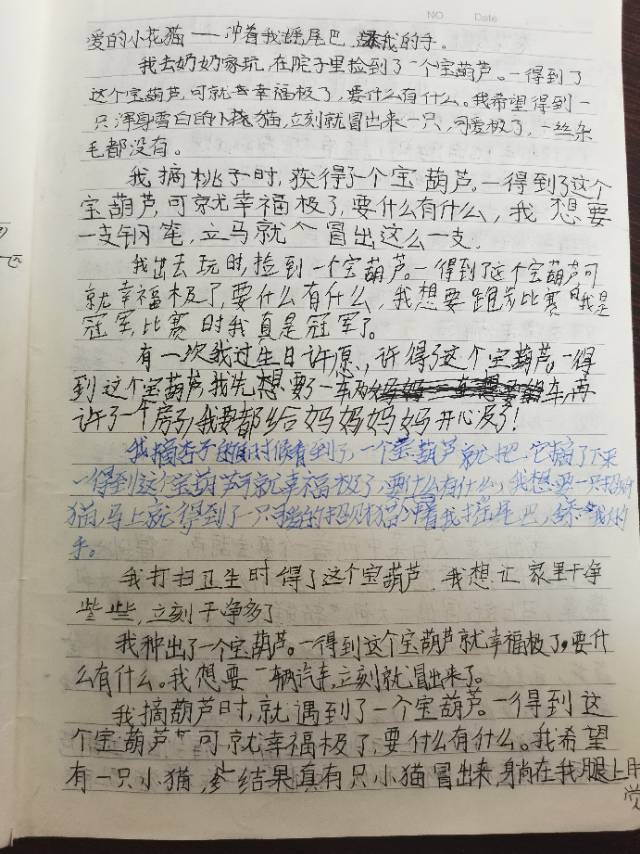 NO. Date
爱的小花猫——冲着我摇尾巴,舔我的手。
我去奶奶家玩,在院子里捡到了一个宝葫芦。一得到了
这个宝葫芦,可就幸福极了,要什么有什么。我希望得到一
只浑身雪白的小猫,立刻就冒出来一只,可爱极了,一丝杂
毛都没有。
我摘桃子时,获得了一个宝葫芦。一得到了这个
宝葫芦,可就幸福极了,要什么有什么,我想要
一支钢笔,立马就冒出这么一支.
我出去玩时,捡到一个宝葫芦。一得到了这个宝葫芦可
就幸福极了,要什么有什么,我想要跑步比赛时我是
冠军,比赛时我真是冠军了。
有一次我过生日许愿,许得了这个宝葫芦。一得
到这个宝葫芦,我先想要了一车,再
许了一个房子,我要都给妈妈妈妈开心及了!
我摘杏子的时候看到了,一个宝葫芦就把它摘了下来
一得到这个宝葫芦可就幸福极了,要什么有什么,我想要一只招财
猫,马上就得到了一只的招财猫冲着我摇尾巴,舔我的
手。
我打扫卫生时得了这个宝葫芦,我想让家里干净
些些,立刻干净多了
我种出了一个宝葫芦。一得到这个宝葫芦就幸福极了,要什
么有什么。我想要一辆汽车,立刻就冒出来了。
我摘葫芦时,就遇到了一个宝葫芦。一得到这
个宝葫芦可就幸福极了,要什么有什么。我希望
有一只小猫,结果真有只小猫冒出来,躺在我腿上
觉